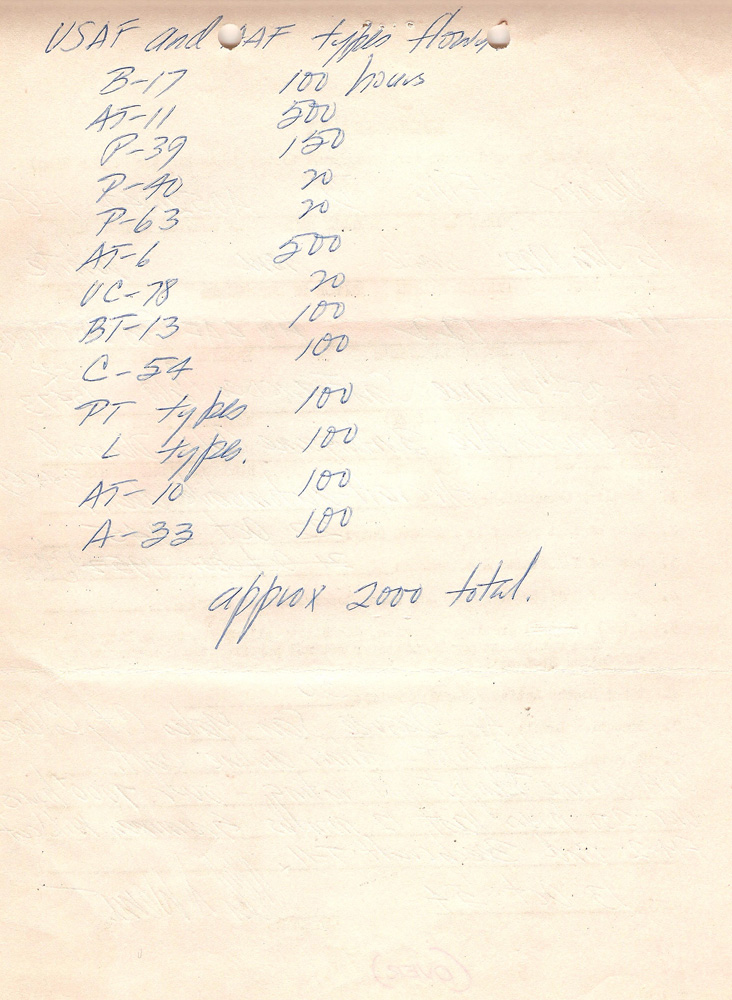 USAF and AAF types flown
B-17 100 hours
AT-11 500
P-39 150
P-40 20
P-63 20
AT-6 500
UC-78 20
BT-13 100
C-54 100
PT types 100
L types. 100
AT-10 100
A-33 100
approx 2000 total.
(OVER)